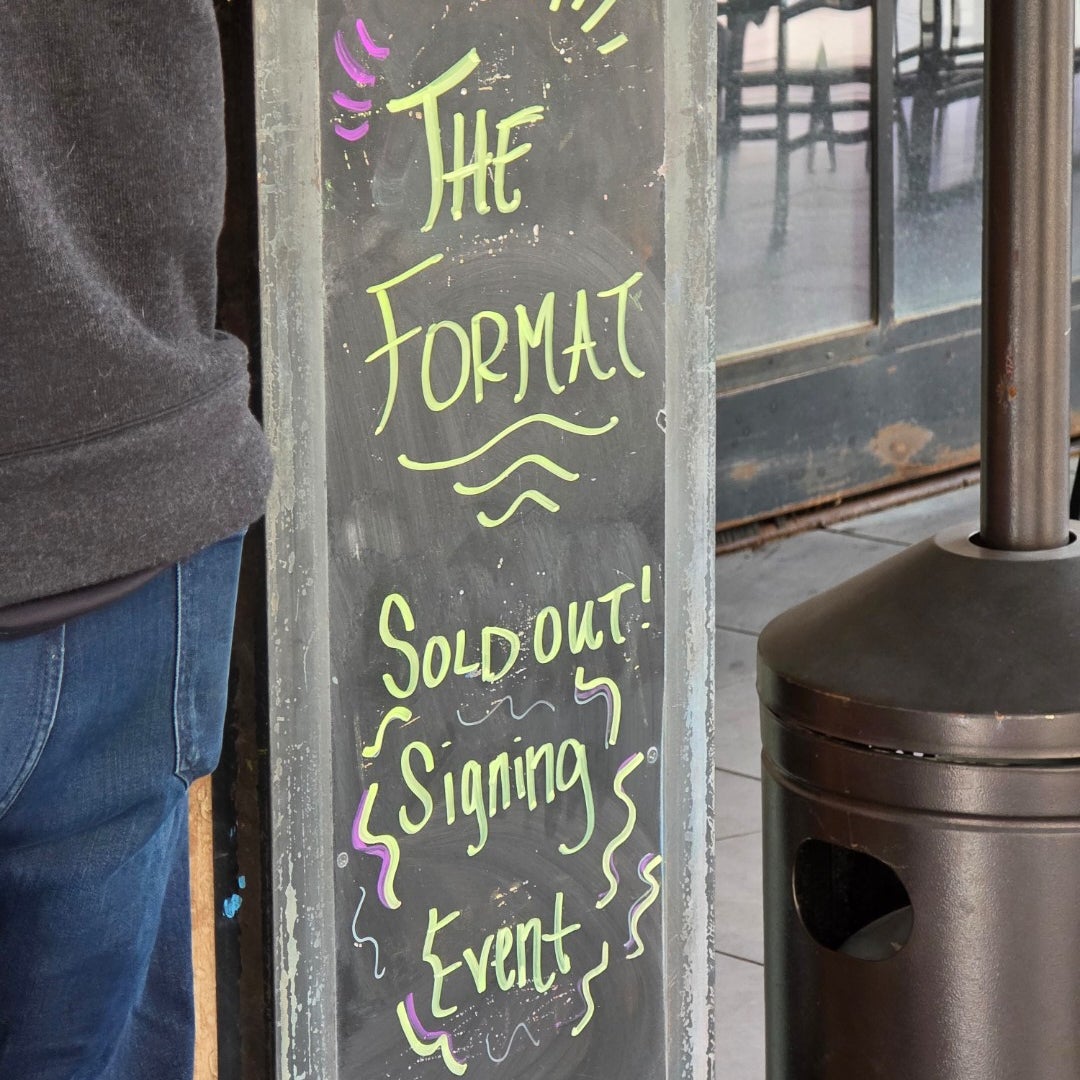 THE
FORMAT
SOLD OUT!
Signing
Event